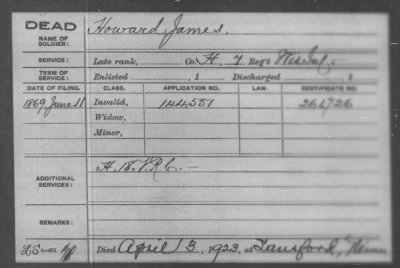 DEAD
NAME OF SOLDIER: Howard, James.
SERVICE: Late rank, Co. H, 7 Reg't Wis Inf.
TERM OF SERVICE: Enlisted , 1 Discharged , 1
DATE OF FILING. CLASS. APPLICATION NO. LAW. CERTIFICATE NO.
1869 June 11 Invalid, 144,551 261,726
Widow,
Minor,
ADDITIONAL SERVICES: H. 18. V.R.C. —
REMARKS:
Died April 3, 1923, at Lansford, Minn